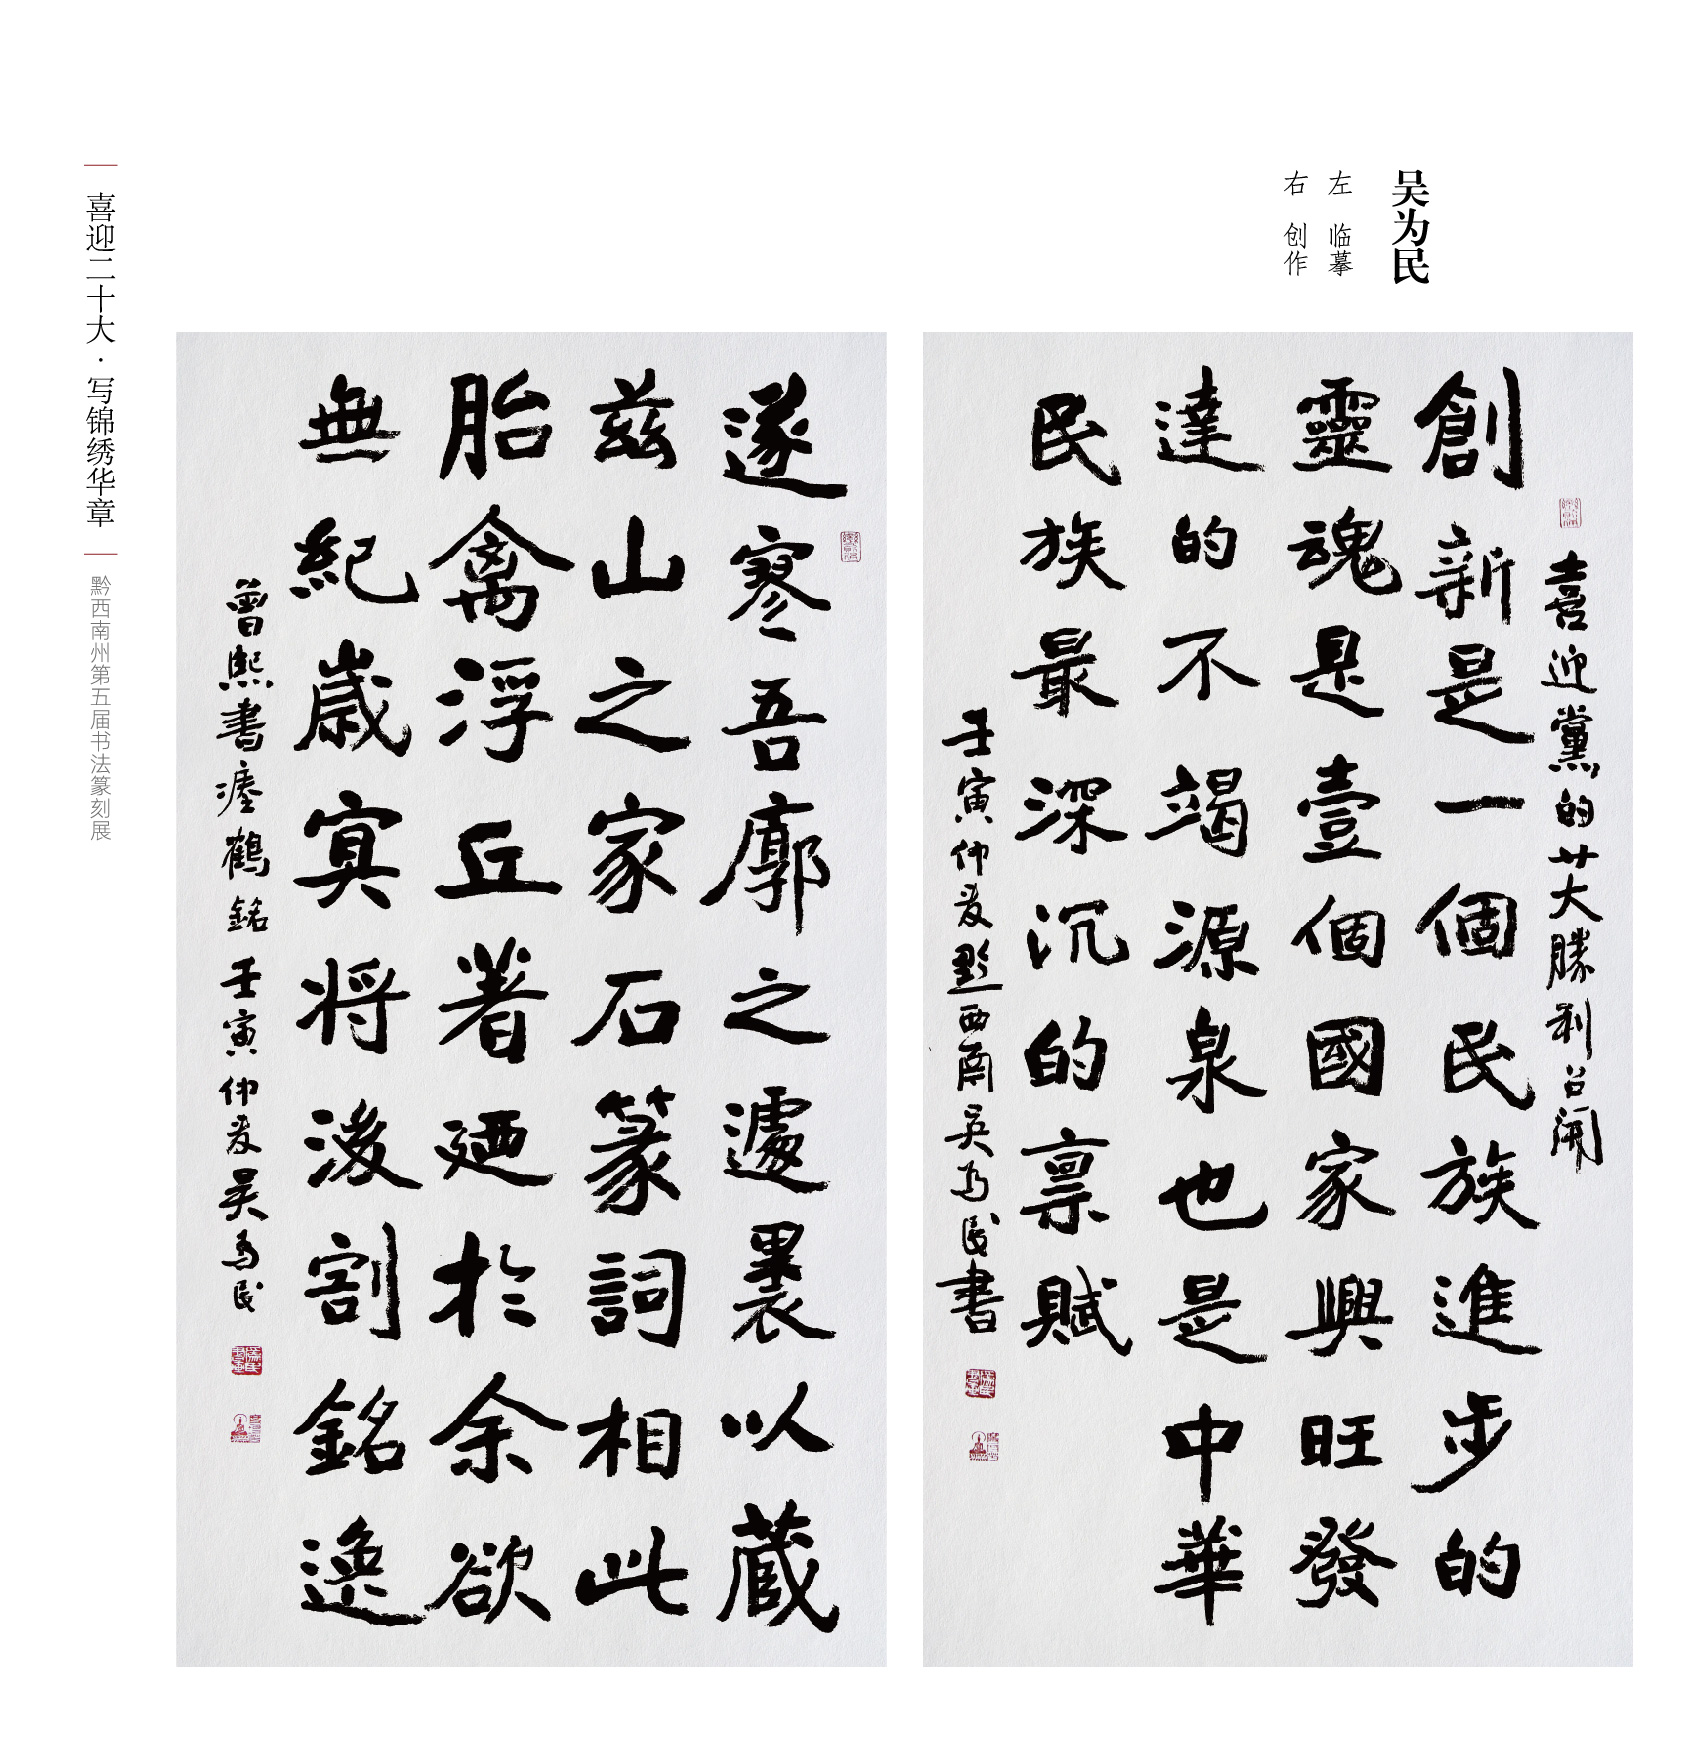 吴为民
左 临摹
右 创作
喜迎黨的廿大勝利召開
創新是一個民族進步的
靈魂是壹個國家興旺發
達的不竭源泉也是中華
民族最深沉的禀賦
壬寅仲夏黔西南吴为民書
遂寥吾廓之遽裹以藏
兹山之家石篆詞相此
胎禽浮丘著廼於余欲
無紀歲将後割銘逸
曾熙書瘞鶴銘壬寅仲夏吴为民
喜迎二十大·写锦绣华章
黔西南州第五届书法篆刻展